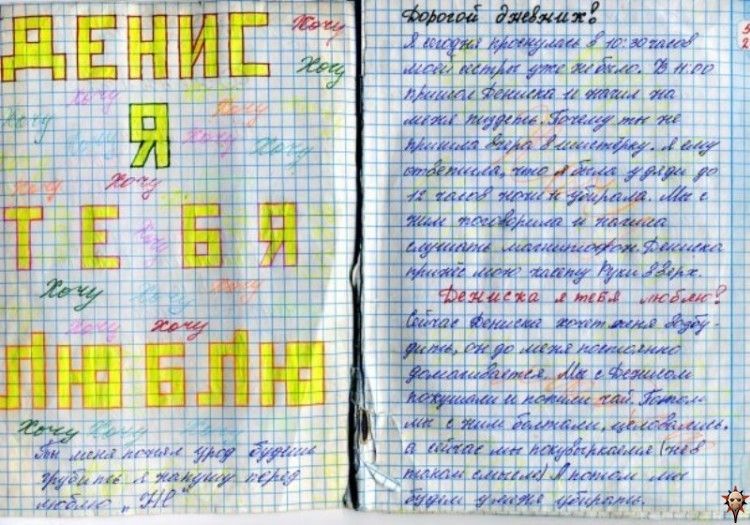 ДЕНИС
Хочу
Хочу
Хочу
Хочу
Хочу
Хочу
Я
Хочу
Хочу
Хочу
Хочу
ТЕБЯ
Хочу
Хочу
Хочу
Хочу
Хочу
Хочу
ЛЮБЛЮ
Хочу Хочу Хочу
Ты меня понял урод будешь
грубить я напишу перед
люблю "НЕ"
Дорогой дневник?
Я сегодня проснулась в 10:30 часов
моей сестры уже не было. В 11:00
пришол Дениска и начил на
меня пиздеть. Почему ты не
пришла вчера в шистёрку. я ему
ответила, что я была у дяди до
12 часов ночи и убирала. Мы с
ним поговорила и начила
слушать магнитофон. Дениска
принёс мою касету Руки вверх.
Дениска я тебя люблю?
Сейчас Дениска хочет меня возбу-
дить, он до меня постоянно
домагивается. Мы с Денисом
покушали и попили чай. Потом
мы с ним болтали, целовались.
а сейчас мы покувыркаемя (не в
таком смысле) А потом мы
будем у меня убирать.